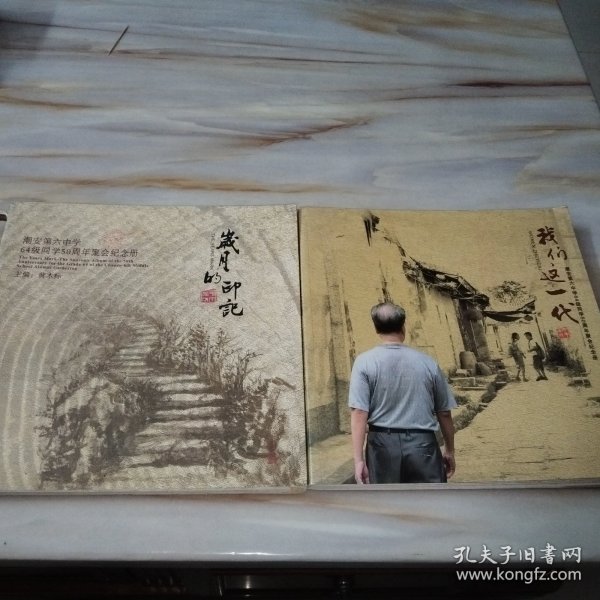 潮安第六中学
64级同学50周年聚会纪念册
The Years Mark-The Souvenir Album of the 50th
Anniversary for the Grade 64 of the Chaoan 6th Middle
School Alumni Gathering
主编：
歲月的印記
我们这一代
孔夫子旧书网
www.kongfz.com